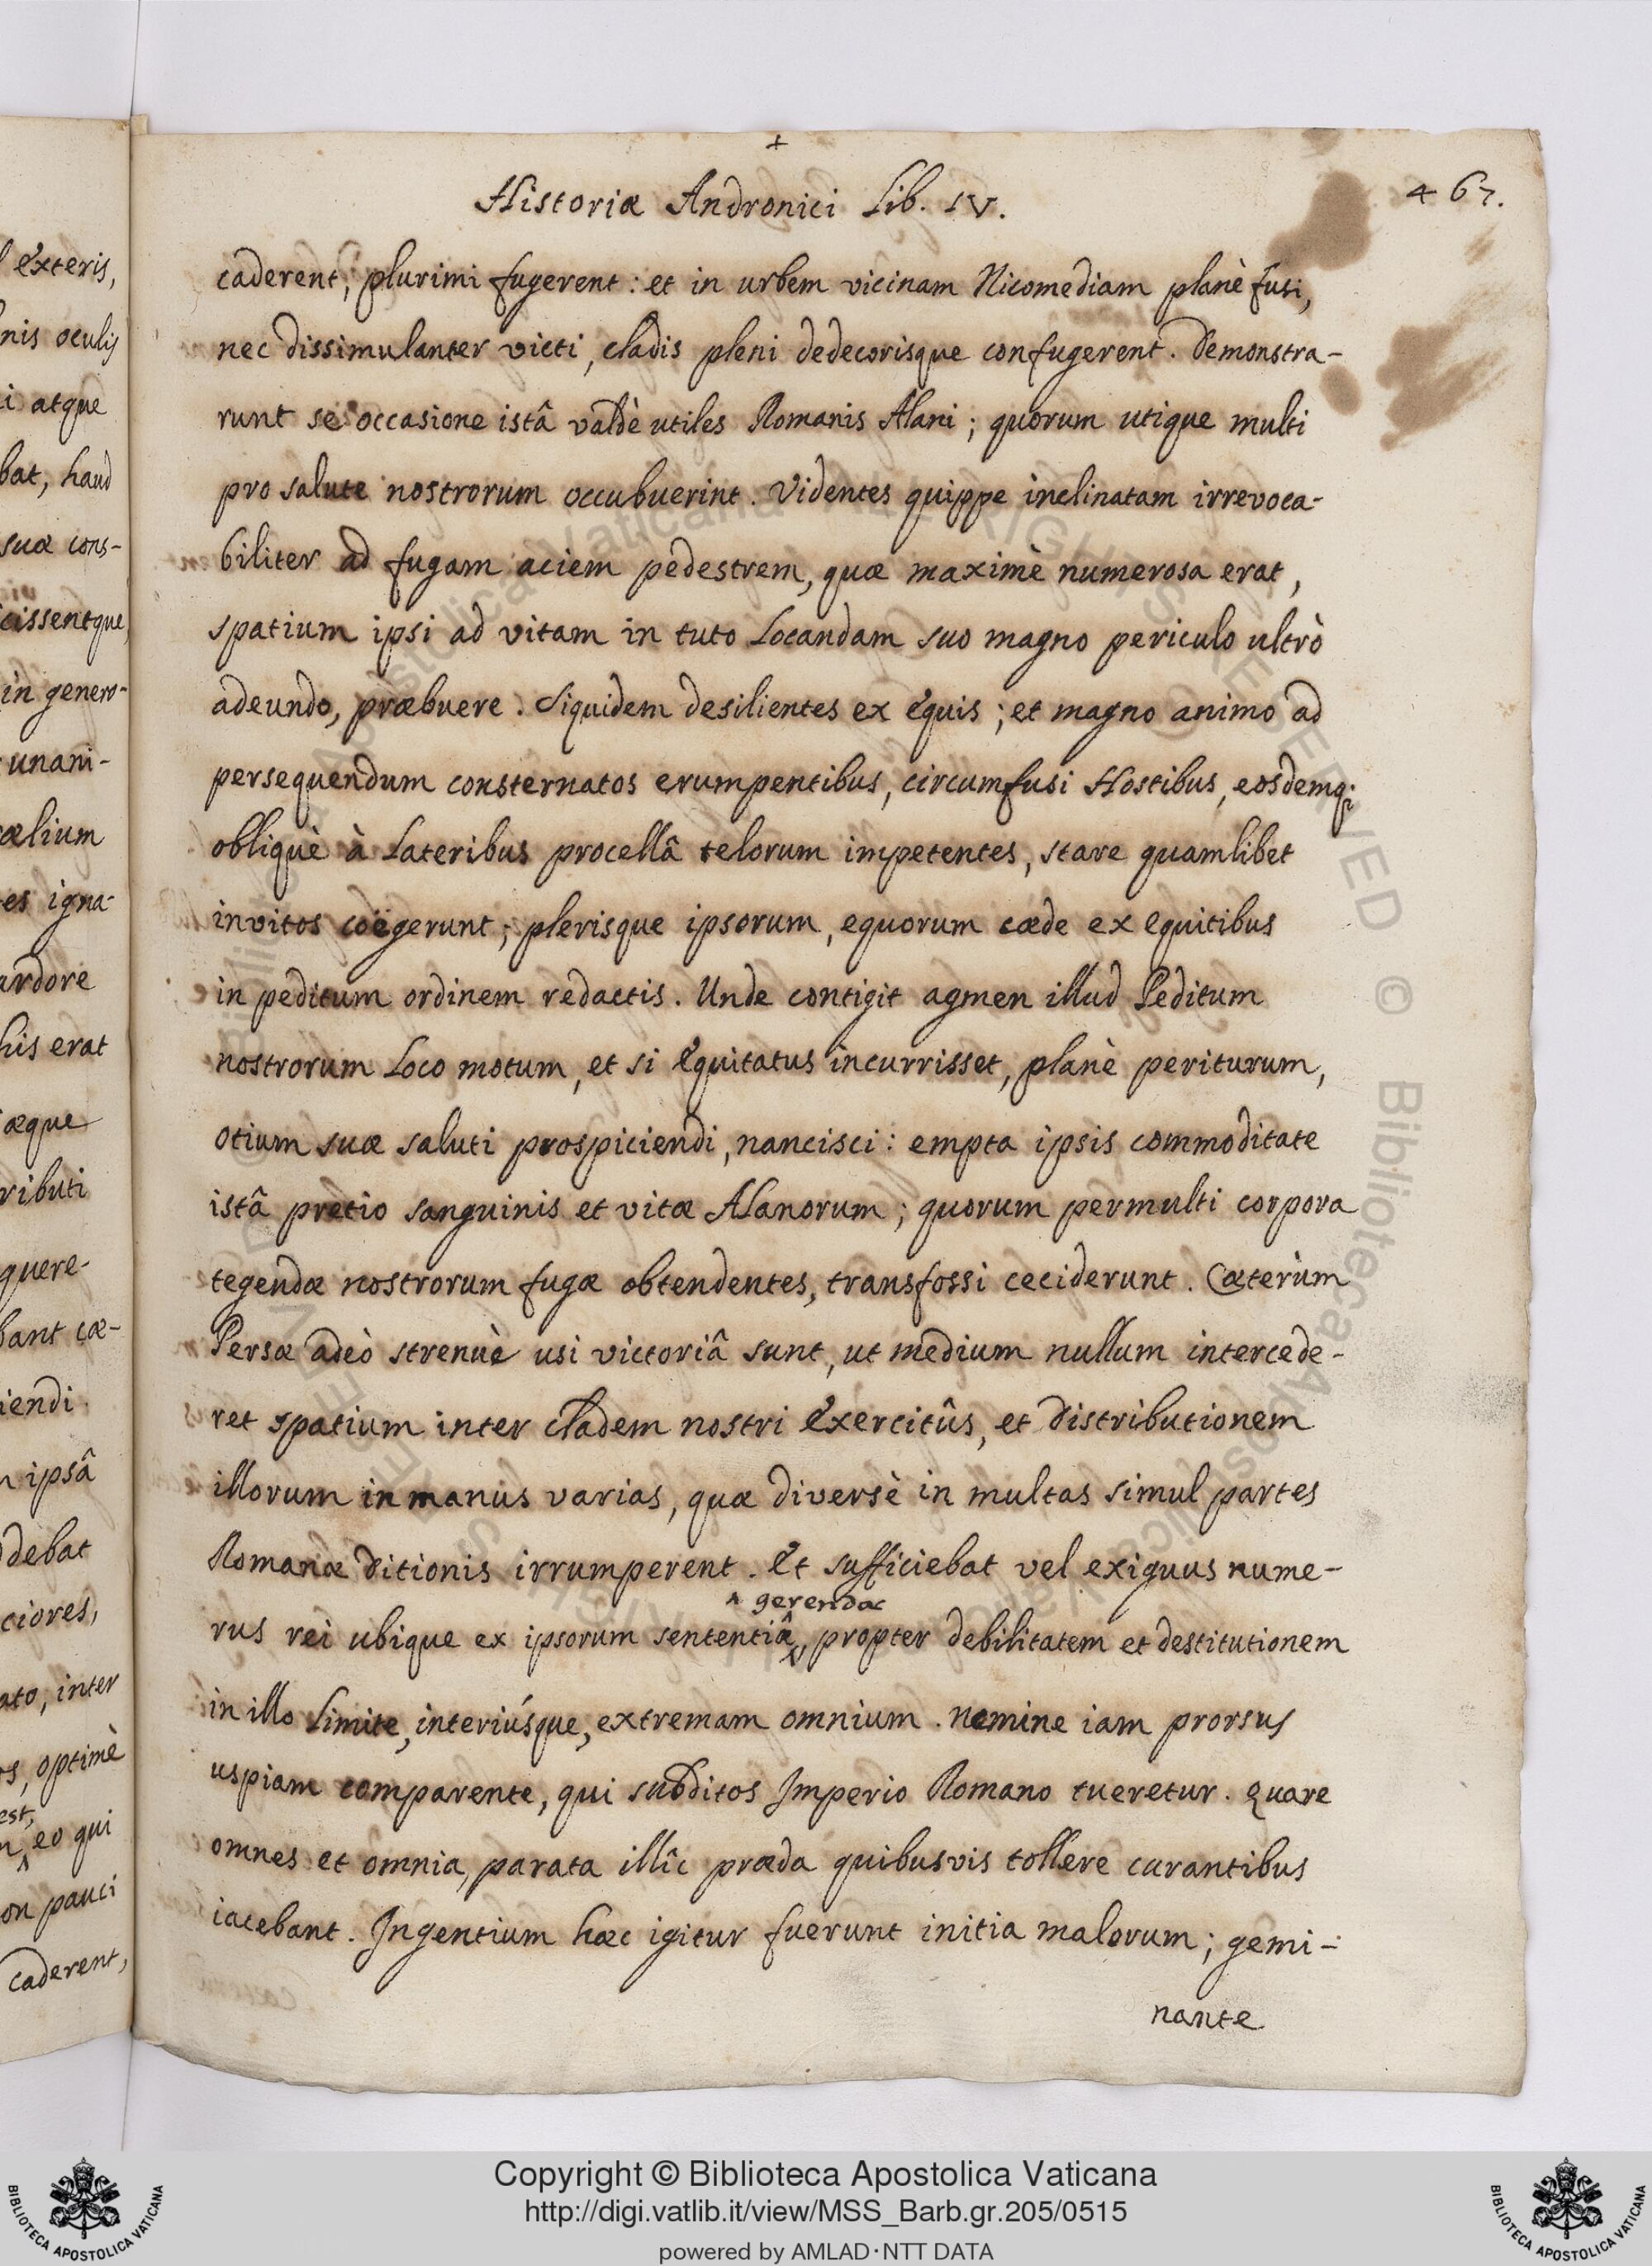 Historiæ Andronici Lib. IV.
467.
caderent, plurimi fugerent: et in urbem vicinam Nicomediam planè fusi,
nec dissimulanter victi, cladis pleni dedecorisque confugerent. Demonstra-
runt se occasione istâ valdè utiles Romanis Alani; quorum utique multi
pro salute nostrorum occubuerint. Videntes quippe inclinatam irrevoca-
biliter ad fugam aciem pedestrem, quæ maximè numerosa erat,
spatium ipsi ad vitam in tuto Locandam suo magno periculo ultrò
adeundo, præbuere. Siquidem desilientes ex Equis; et magno animo ad
persequendum consternatos erumpentibus, circumfusi Hostibus, eosdemq;
obliquè à Lateribus procellâ telorum impetentes, stare quamlibet
invitos coëgerunt; plerisque ipsorum, equorum cæde ex equitibus
in peditum ordinem redactis. Unde contigit agmen illud Peditum
nostrorum Loco motum, et si Equitatus incurrisset, planè periturum,
otium suæ saluti prospiciendi, nancisci: empta ipsis commoditate
istâ pretio sanguinis et vitæ Alanorum; quorum permulti corpora
tegendæ nostrorum fugæ obtendentes, transfossi ceciderunt. Cæterùm
Persæ adeò strenuè usi victoriâ sunt, ut medium nullum intercede-
ret spatium inter cladem nostri Exercitûs, et distributionem
illorum in manus varias, quæ diversè in multas simul partes
Romanæ ditionis irrumperent. Et sufficiebat vel exiguus nume-
^ gerendae
rus rei ubique ex ipsorum sententiâ, propter debilitatem et destitutionem
in illo Limite, interiúsque, extremam omnium. nemine iam prorsus
uspiam comparente, qui subditos Imperio Romano tueretur. Quare
omnes et omnia, parata illîc præda quibusvis tollere curantibus
iacebant. Ingentium hæc igitur fuerunt initia malorum; gemi-
nante
exteris,
nis oculis
i atque
bat, haud
suæ cons-
cissentque,
in genero-
unani-
ælium
es igna-
ardore
his erat
æque
ributi
quere-
bant cæ-
iendi.
ipsâ
debat
ciores,
ato, inter
os, optimè
est,
^ eo qui
on pauci
caderent,
Copyright © Biblioteca Apostolica Vaticana
http://digi.vatlib.it/view/MSS_Barb.gr.205/0515
powered by AMLAD·NTT DATA
BIBLIOTECA APOSTOLICA VATICANA
BIBLIOTECA APOSTOLICA VATICANA